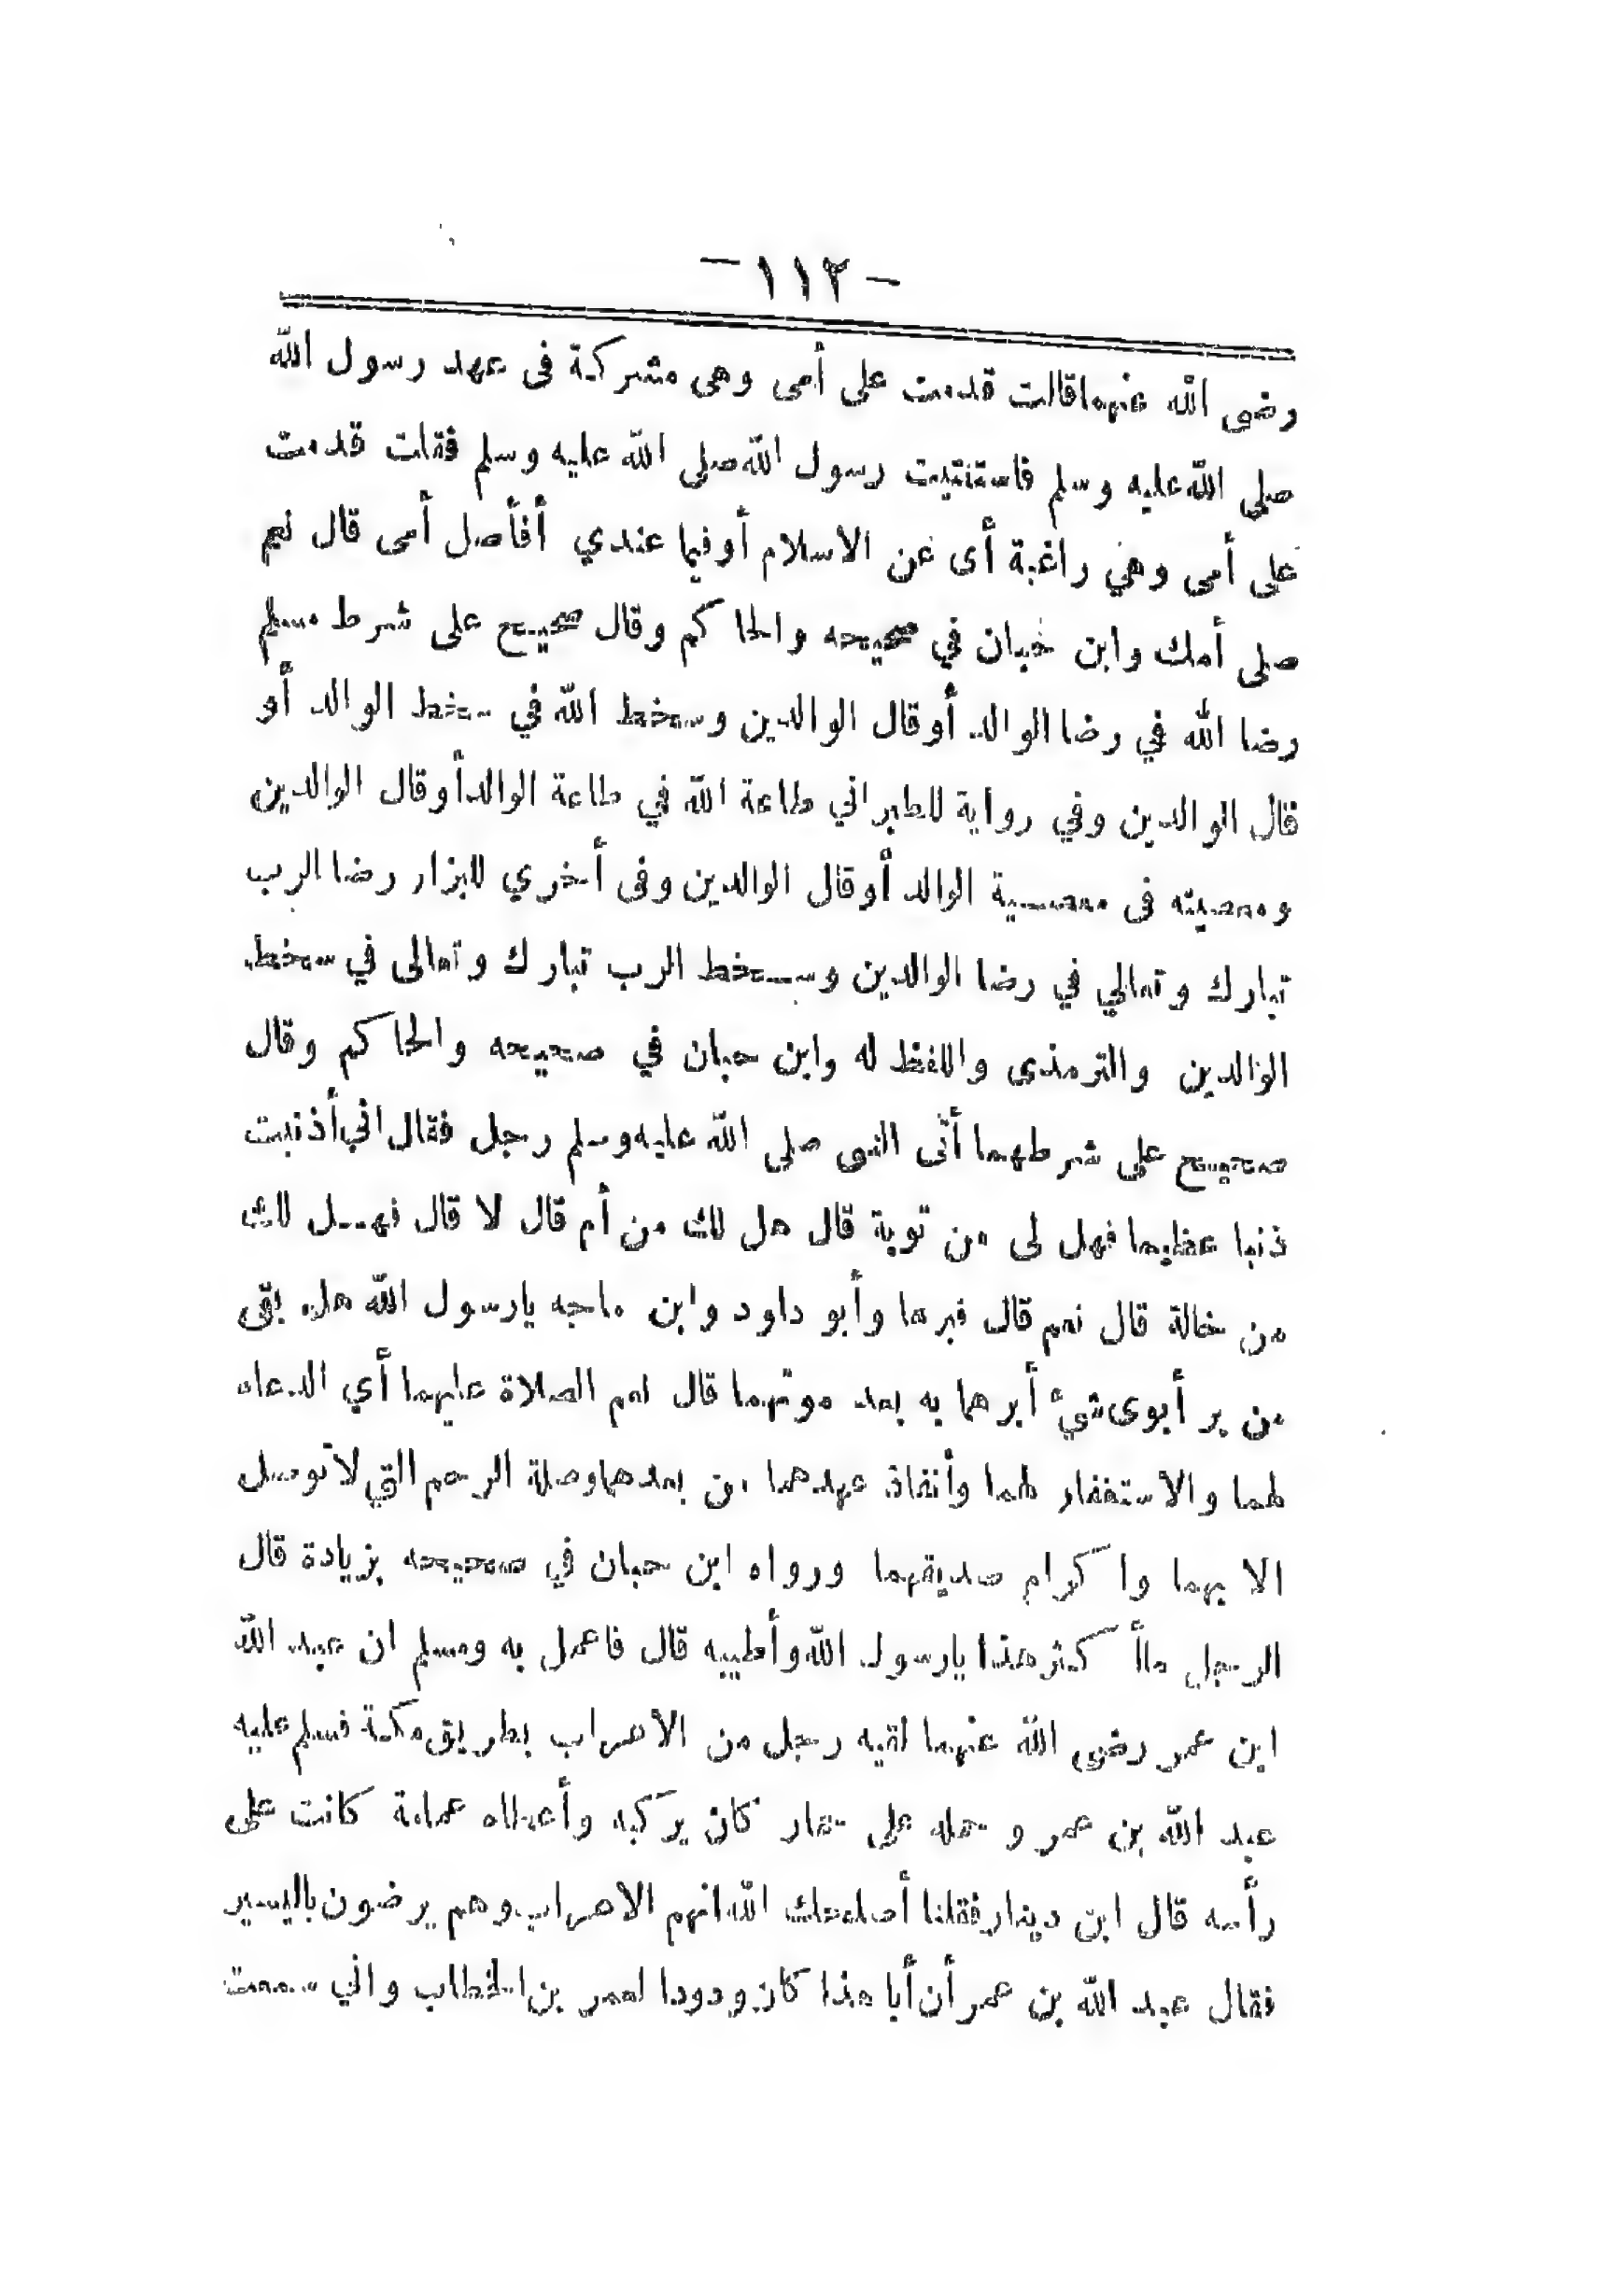 - ١١٢ -
رضى الله عنهما قالت قدمت على أمى وهى مشركة فى عهد رسول الله
صلى الله عليه وسلم فاستفتيت رسول الله صلى الله عليه وسلم فقلت قدمت
على أمى وهي راغبة أى عن الاسلام أو فيما عندي أفأصل أمى قال نعم
صلى أمك وابن حبان في صحيحه والحاكم وقال صحيح على شرط مسلم
رضا الله في رضا الوالد أو قال الوالدين وسخط الله في سخط الوالد أو
قال الوالدين وفي رواية للطبراني طاعة الله في طاعة الوالد أو قال الوالدين
ومعصيته فى معصية الوالد أو قال الوالدين وفى أخري للبزار رضا الرب
تبارك وتعالي في رضا الوالدين وسخط الرب تبارك وتعالى في سخط
الوالدين والترمذى واللفظ له وابن حبان في صحيحه والحاكم وقال
صحيح على شرطهما أتى النبى صلى الله عليه وسلم رجل فقال اني أذنبت
ذنبا عظيما فهل لى من توبة قال هل لك من أم قال لا قال فهل لك
من خالة قال نعم قال فبرها وأبو داود وابن ماجه يارسول الله هل بقى
من بر أبوى شيء أبرهما به بعد موتهما قال نعم الصلاة عليهما أي الدعاء
لهما والاستغفار لهما وأنفاذ عهدهما من بعدهما وصلة الرحم التي لا توصل
الا بهما واكرام صديقهما ورواه ابن حبان في صحيحه بزيادة قال
الرجل ماأكثر هذا يارسول الله وأطيبه قال فاعمل به ومسلم ان عبد الله
ابن عمر رضى الله عنهما لقيه رجل من الأعراب بطريق مكة فسلم عليه
عبد الله بن عمر وحمله على حمار كان يركبه وأعطاه عمامة كانت على
رأسه قال ابن دينار فقلنا أصلحك الله انهم الاعراب وهم يرضون باليسير
فقال عبد الله بن عمر أن أبا هذا كان ودودا لعمر بن الخطاب واني سمعت